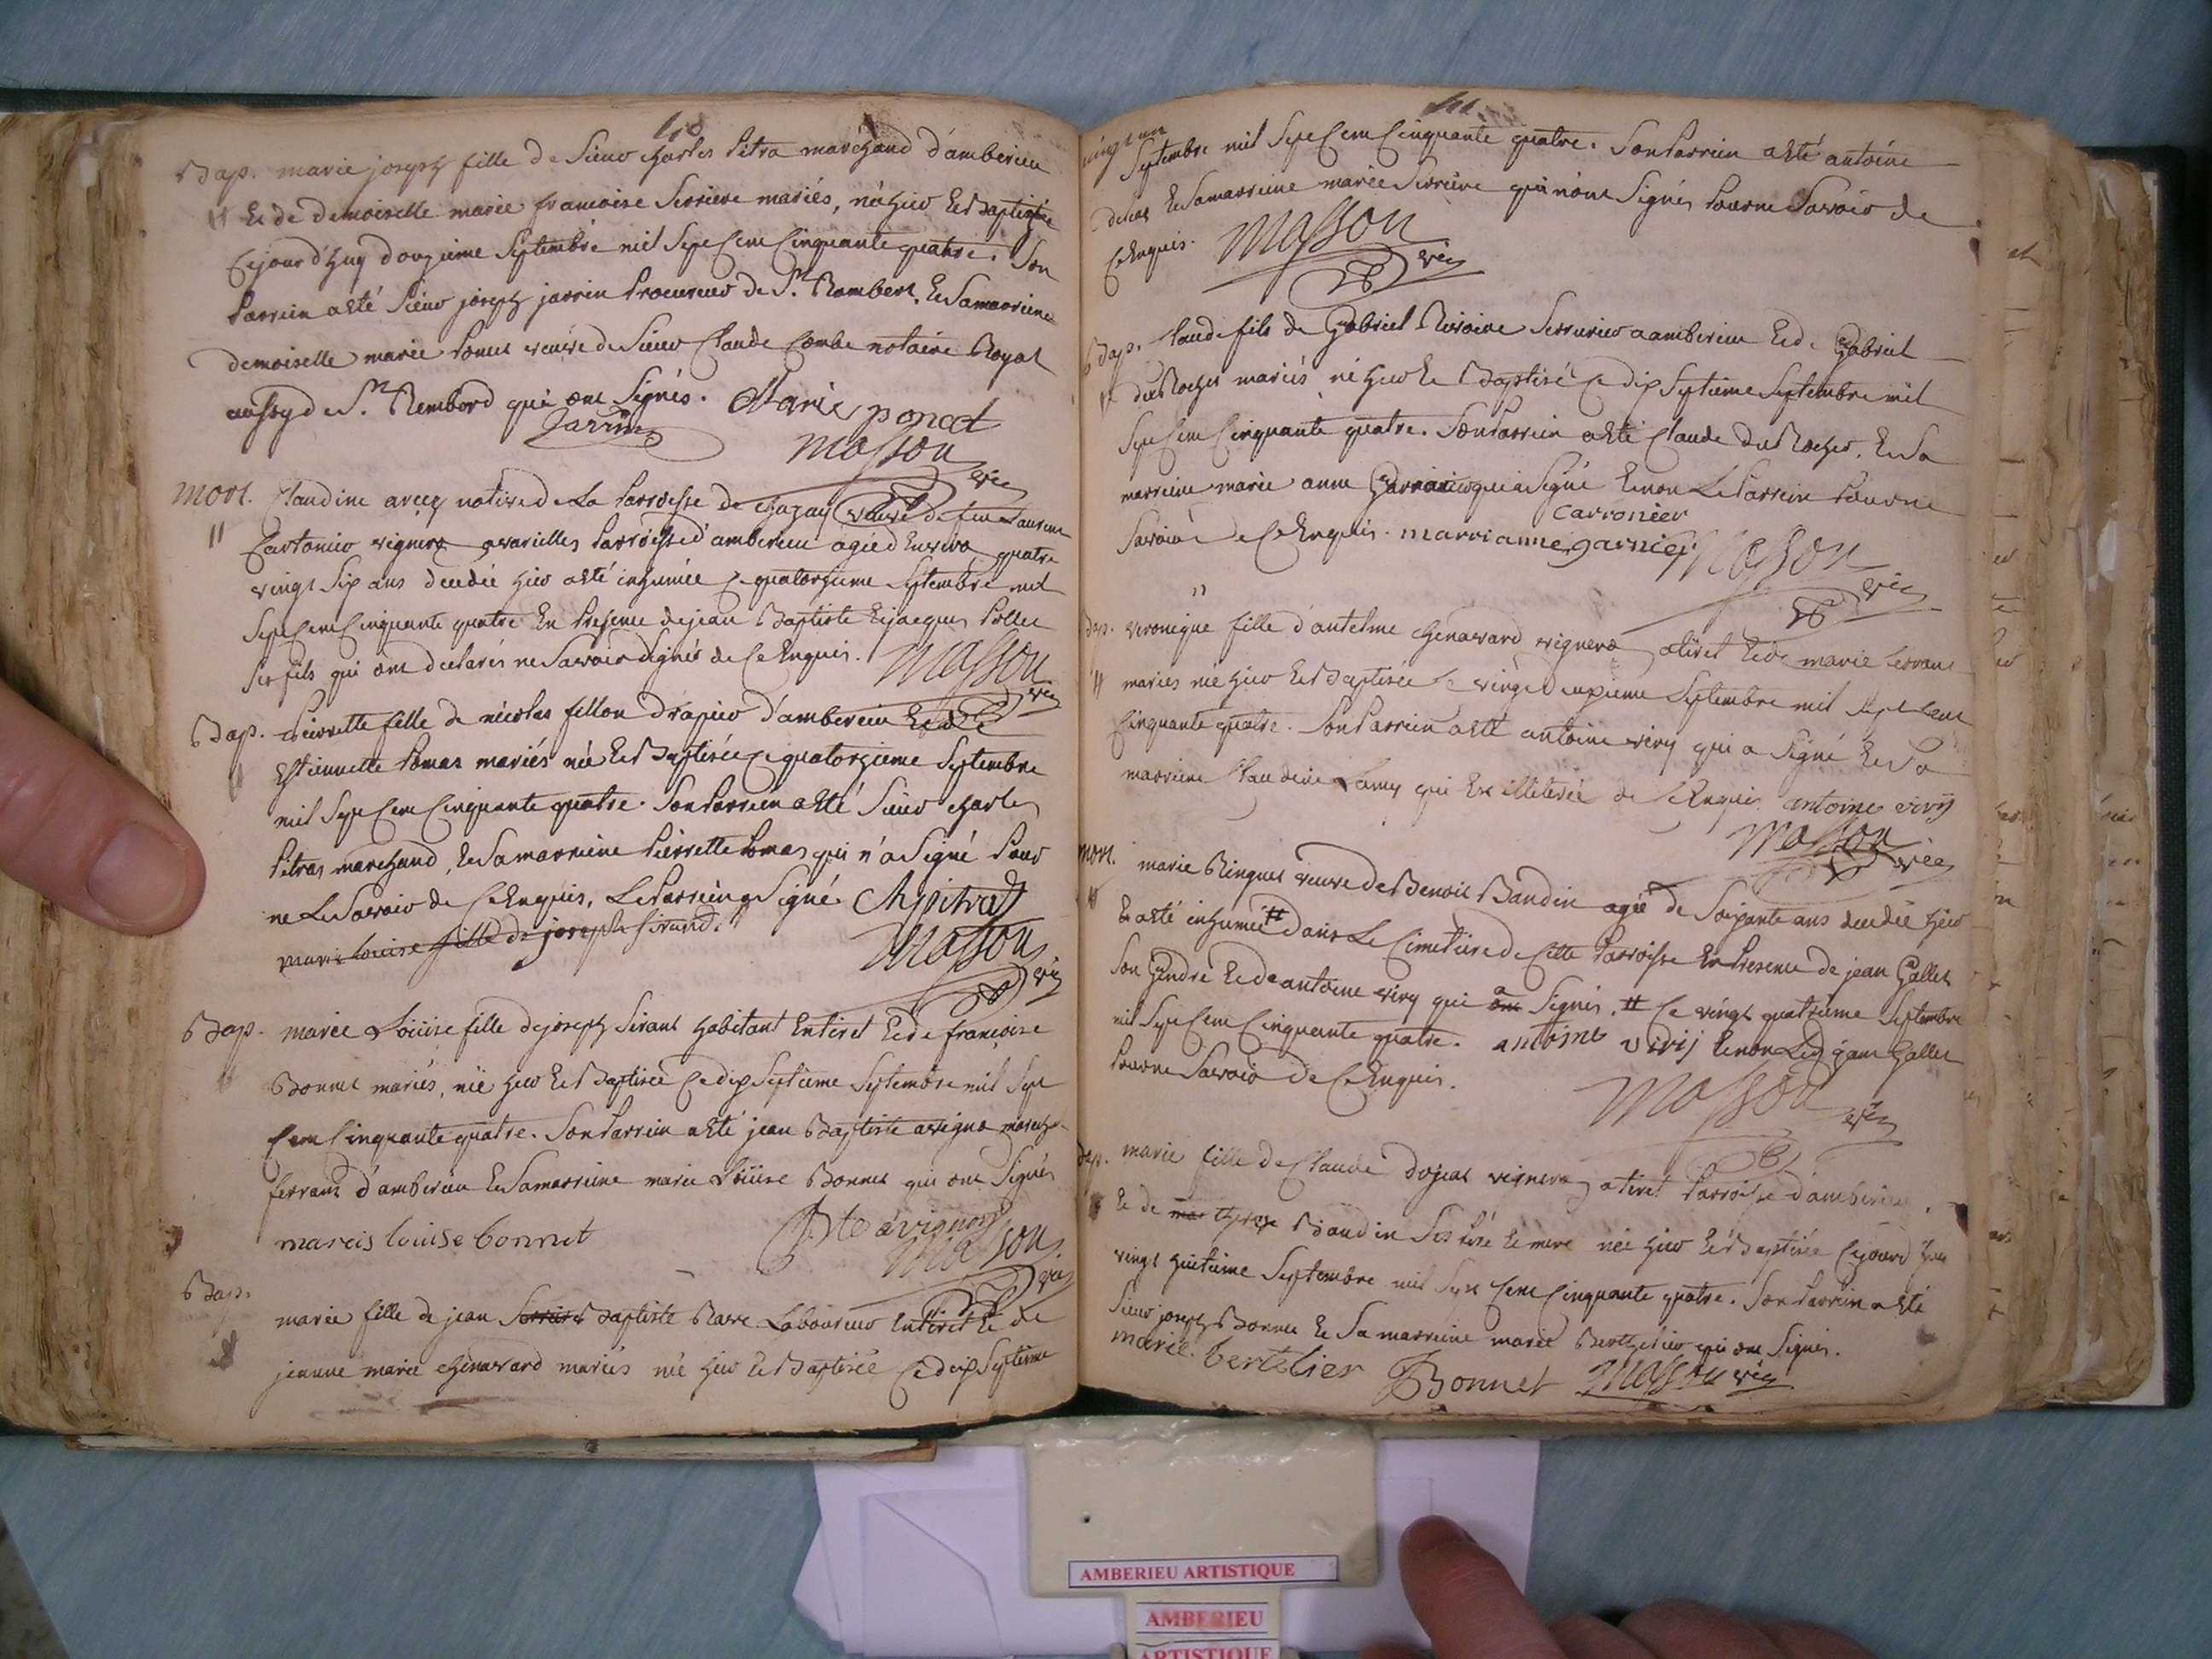 110
Bap. marie joseph fille de Sieur charles Pitra marchand d'amberieu
Et de demoiselle marie francoise Serriere mariés, née hier Et Baptisée
Cejourd'huy douzieme Septembre mil Sept Cent Cinquante quatre. Son
Parrein a Eté Sieur joseph jarrin Procureur de St Rambert, Et Sa marreine
demoiselle marie Poncet veuve de Sieur Claude Combe notaire Royal
aussy de St Rembord qui ont Signés. Marie poncet
Jarrin
Masson vic
mort. Claudine native de La Parroisse de chazay veuve de feu Laurent
vigneron a varilles Parroisse d'amberieu agée d'Environ quatre
vingt Six ans decedée hier a Eté inhumée Ce quatorzieme Septembre mil
Sept Cent Cinquante quatre En Presence de jean Baptiste Et jacques Pollet
Ses fils qui ont declarés ne Savoir Signer de Ce Enquis. Masson
vic
Bap. Pierrette fille de nicolas fillon drapier d'amberieu Et de
Estiennette Pomas mariés née Et Baptisée Ce quatorzieme Septembre
mil Sept Cent Cinquante quatre. Son Parrein a Eté Sieur charles
Pitras marchand, Et Sa marreine Pierrette Pomas qui n'a Signé Pour
ne Le Savoir de Ce Enquis, Le Parrein a Signé Ch pitrat
marie louise fille de joseph sirand.
Masson
vic
Bap. marie Loüise fille de joseph Sirant habitant En tiret Et de françoise
Bonnet mariés, née hier Et Baptisée Ce dix Septieme Septembre mil Sept
Cent Cinquante quatre. Son Parrein a Eté jean Baptiste avignon marechal
ferrant d'amberieu Et Sa marreine marie Loüise Bonnet qui ont Signés
mareis louise bonnet J Bte avignon
Masson
vic
Bap.
marie fille de jean Baptiste Rave Laboureur En tiret Et de
jeanne marie chenavard mariés née hier Et Baptisée Ce dix Septieme
111
vingt un
Septembre mil Sept Cent Cinquante quatre. Son Parrein a Eté antoine
Et Sa marreine marie Serriere qui n'ont Signés Pour ne Savoir de
Ce Enquis. Masson
vic
Bap. Claude fils de Gabriel Revoire Serrurier a amberieu Et de Gabriel
du Rocher mariés né hier Et Baptisé Ce dix Septieme Septembre mil
Sept Cent Cinquante quatre. Son Parrein a Eté Claude du Rocher, Et Sa
marreine marie anne qui a Signé Et non Le Parrein Pour ne
carronier
Savoir de Ce Enquis. marrianne garnier Masson
vic
Bap. veronique fille d'antelme chenavard vigneron a tiret Et de marie Serrant
mariés née hier Et Baptisée Le vingt deuxieme Septembre mil Sept Cent
Cinquante quatre. Son Parrein a Eté antoine viry qui a Signé Et Sa
marreine Claudine Lamy qui Est illiterée de Ce Enquis antoine virij
Masson
vic
mort. marie Ringuet veuve de Benoit Baudin agée de Soixante ans decedée hier
Et a Eté inhumée # dans Le Cimetiere de Cette Parroisse En Presence de jean Gallet
Son Gendre Et de antoine viry qui a ont Signés. # Ce vingt quatrieme Septembre
mil Sept Cent Cinquante quatre. antoine virij Et non Led jean Gallet
Pour ne Savoir de Ce Enquis.
Masson
vic
Bap. marie fille de Claude dojeat vigneron a tiret Parroisse d'amberieu
Et de mar therese Baudin Ses Pere Et mere née hier Et Baptisée Cejourd'huy
vingt huitieme Septembre mil Sept Cent Cinquante quatre. Son Parrein a Eté
Sieur joseph Bonnet Et Sa marreine marie Berthelier qui ont Signés.
marie bertelier JBonnet Masson vic
AMBERIEU ARTISTIQUE
AMBERIEU
ARTISTIQUE